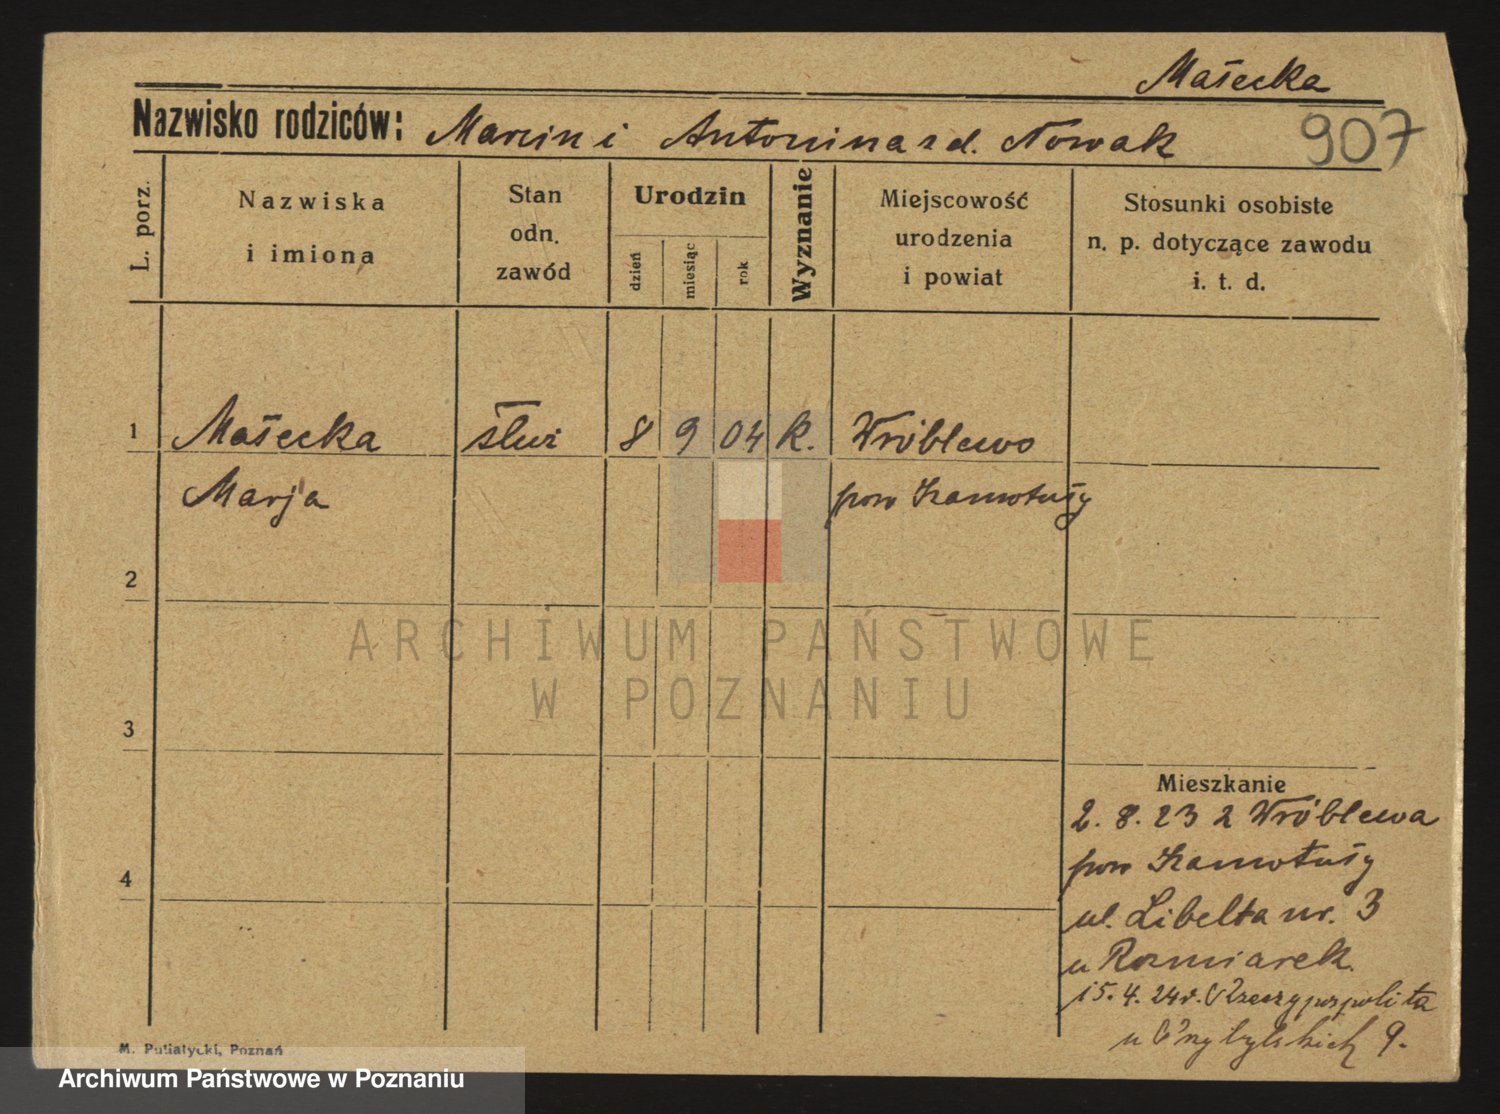 Małecka
Nazwisko rodziców: Marcin i Antonina z d. Nowak
907
L. porz.
Nazwiska
i imiona
Stan
odn.
zawód
Urodzin
dzień
miesiąc
rok
Wyznanie
Miejscowość
urodzenia
i powiat
Stosunki osobiste
n. p. dotyczące zawodu
i. t. d.
1 Małecka służ 8 9 04 k. Wróblewo
Marja pow Szamotuły
2
ARCHIWUM PAŃSTWOWE
W POZNANIU
3
4
Mieszkanie
2. 8. 23 z Wróblewa
pow Szamotuły
ul. Libelta nr. 3
u Rozmiarek.
15. 4. 24 r. Rzeczypospolita
9.
M. Putiatycki, Poznań
Archiwum Państwowe w Poznaniu